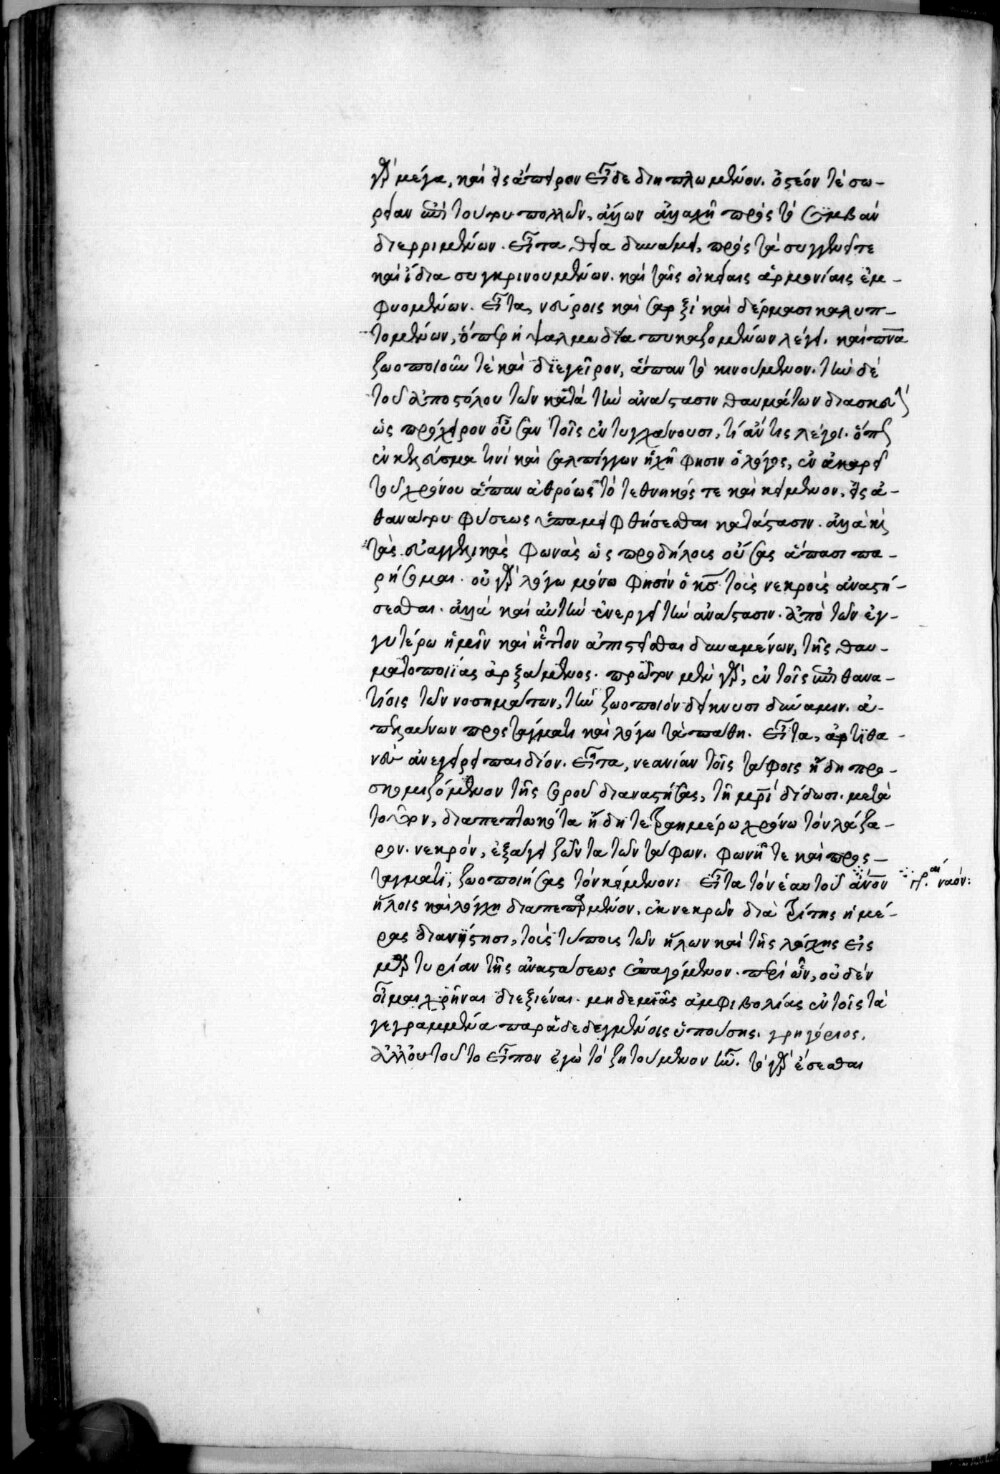 γὰρ μέγα, καὶ εἰς ἄπειρον εἶδε διηπλωμένον. ὀστέον τὲ σω-
ρείαν ἐπὶ τούτου πολλῶν, ἄλλων ἀλλαχῆ πρὸς τὸ συμβὰν
διερριμένων. εἶτα θεία δυνάμει, πρὸς τὰ συγγενῆ τε
καὶ ἴδια συγκρινουμένων. καὶ ταῖς οἰκείαις ἁρμονίαις ἐμ-
φυομένων. εἶτα, νεύροις καὶ σαρξὶ καὶ δέρμασι καλυπ-
τομένων, ὅπερ ἡ ψαλμωδία πυκαζομένων λέγει. καὶ πνα
ζωοποιοῦν τὲ καὶ διεγεῖρον, ἅπαν τὸ κινούμενον. τὴν δὲ
τοῦ ἀποστόλου τῶν κατὰ τὴν ἀνάστασιν θαυμάτων διασκευὴν
ὡς πρόχειρον οὖσαν τοῖς ἐντυγχάνουσι, τί ἄν τις λέγοι. ὅπως
ἐν κελεύσματι τινὶ καὶ σαλπίγγων ἤχῃ φησιν ὁ λόγος, ἐν ἀκαρεῖ
τοῦ χρόνου ἅπαν ἀθρόως τὸ τεθνηκός τε καὶ κείμενον, εἰς ἀ-
θανάτου φύσεως ὑπαμειφθήσεσθαι κατάστασιν. ἀλλὰ καὶ
τὰς εὐαγγελικὰς φωνὰς ὡς προδήλους οὔσας ἅπασι πα-
ρήσομαι. οὐ γὰρ λόγω μόνω φησὶν ὁ κς τοὺς νεκροὺς ἀναστή-
σεσθαι. ἀλλὰ καὶ αὐτὴν ἐνεργεῖ τὴν ἀνάστασιν. ἀπὸ τῶν ἐγ-
γυτέρω ἡμῖν καὶ ἧττον ἀπιστεῖσθαι δυναμένων, τῆς θαυ-
ματοποιΐας ἀρξάμενος. πρῶτον μὲν γὰρ, ἐν τοῖς ἐπιθανα-
τίοις τῶν νοσημάτων, τὴν ζωοποιὸν δείκνυσι δύναμιν. ἀ-
πελαύνων προστάγματι καὶ λόγω τὰ πάθη. εἶτα, ἀρτιθα-
νὲς ἀνεγείρει παιδίον. εἶτα, νεανίαν τοῖς τάφοις ἤδη προσ-
κομιζόμενον τῆς σοροῦ διαναστήσας, τῆ μρὶ δίδωσι. μετὰ
τοῦτον, διαπεπτωκότα ἤδη τετραημέρω χρόνω τὸν λάζα-
ρον νεκρὸν, ἐξάγει ζῶντα τῶν τάφων. φωνῆ τε καὶ προσ-
τάγματι, ζωοποιήσας τὸν κείμενον: εἶτα τὸν ἑαυτοῦ ἄνον
γρ. καὶ ναόν:
ἥλοις καὶ λόγχη διαπεπαρμένον, ἐκ νεκρῶν διὰ τρίτης ἡμέ-
ρας διανίστησι, τοὺς τύπους τῶν ἥλων καὶ τῆς λόγχης εἰς
μαρτυρίαν τῆς ἀναστάσεως ἐπαγόμενον. περὶ ὧν, οὐδὲν
οἶμαι χρῆναι διεξιέναι. μηδεμιᾶς ἀμφιβολίας ἐν τοῖς τὰ
γεγραμμένα παραδεδεγμένοις ὑπούσης. γρηγόριος.
ἀλλ' οὐ τοῦτο εἶπον ἐγὼ τὸ ζητούμενον ἦν. τὸ γὰρ ἔσεσθαι